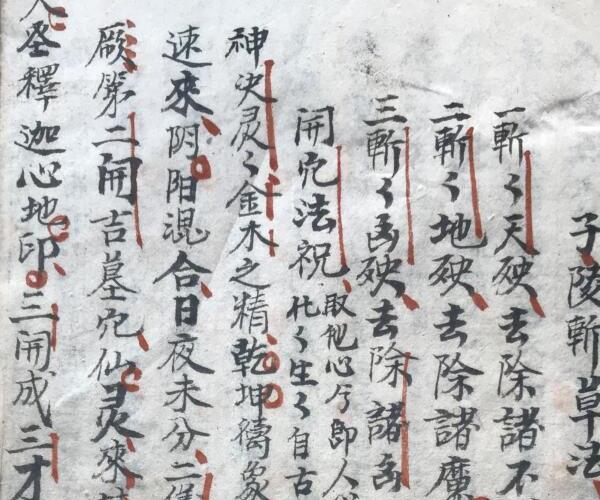 子陵斬草法
一斬々天殃去除諸不
二斬々地殃去除諸魔
三斬々凶殃去除諸凶
開穴法祝
取他心今即人
化々生々自古
神決灵々金木之精乾坤禱象
速來阴阳混合日夜未分二儀
厥第二開吉墓穴仙灵來
圣釋迦心地印三開成三才